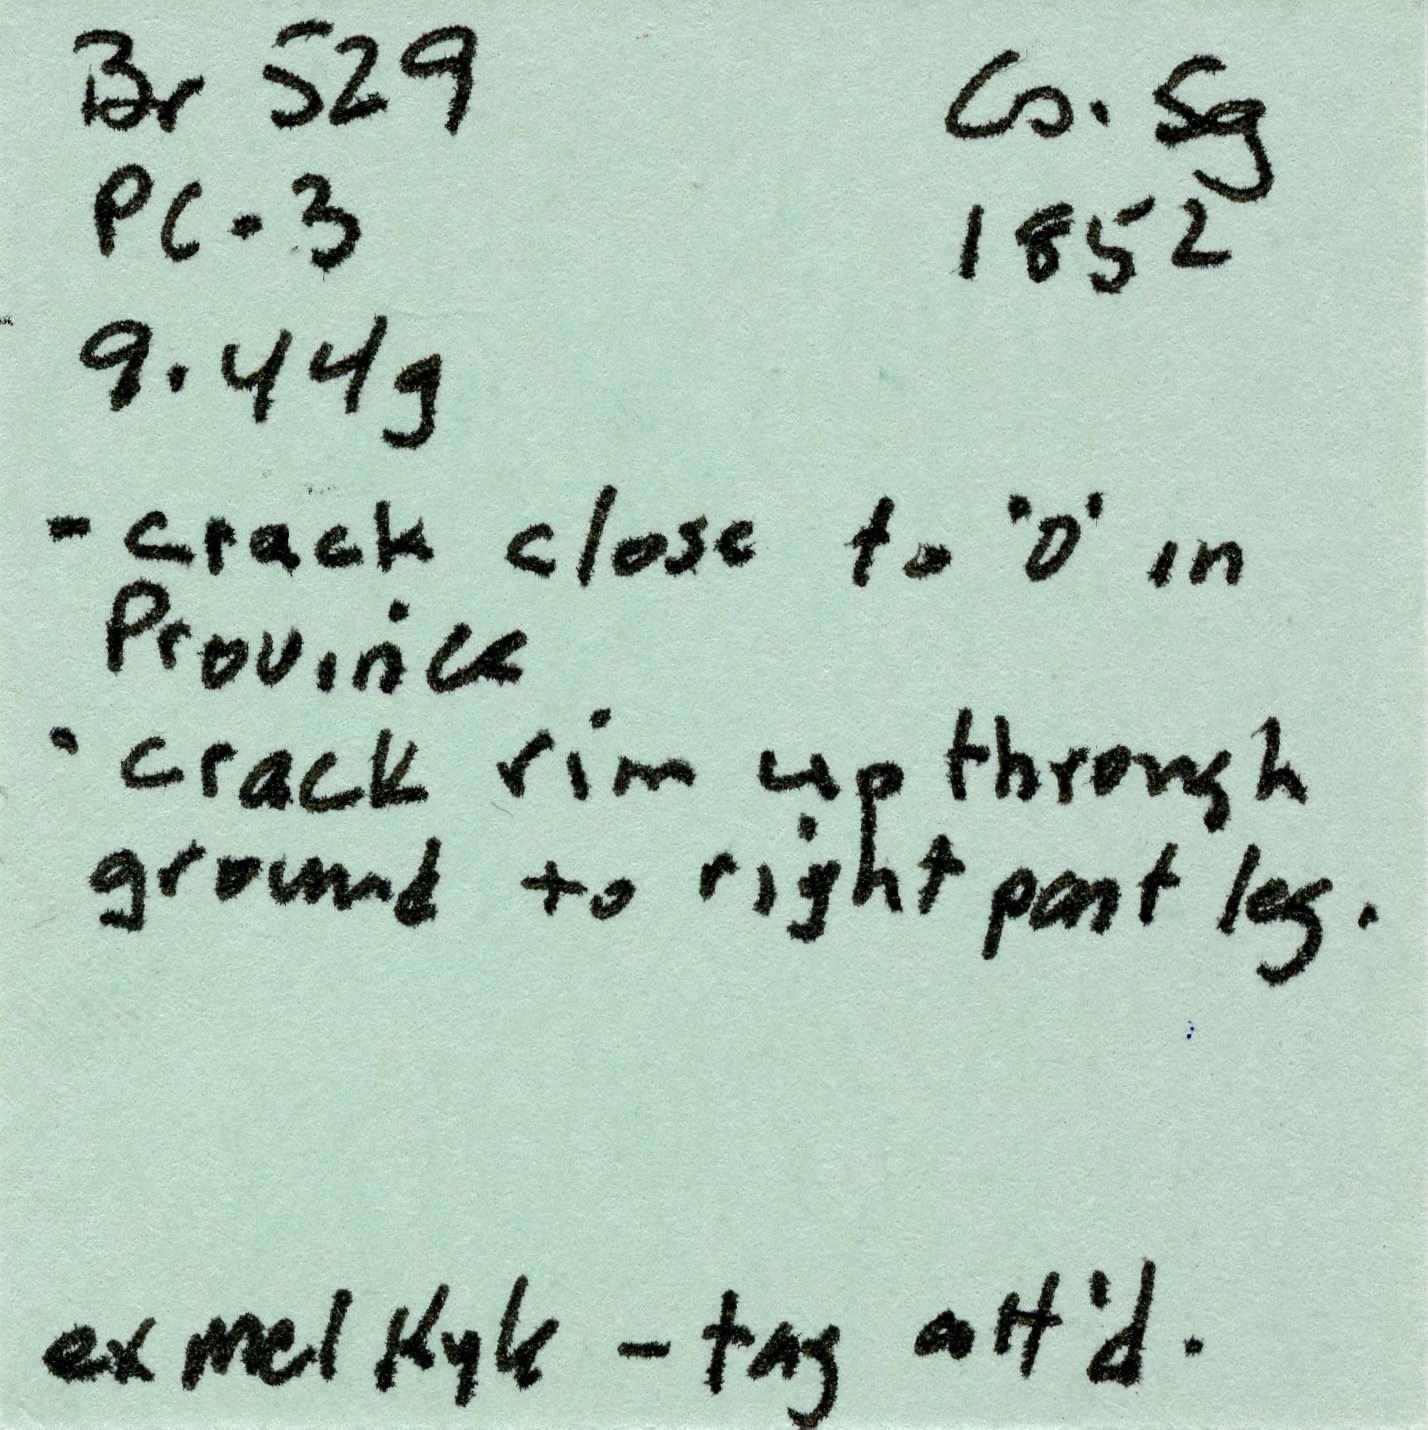 Br 529 Co. Sg
PC-3 1852
9.44g
- crack close to 'o' in
Province
- crack rim up through
ground to right part leg.
ex Mel Kyle - tag att'd.